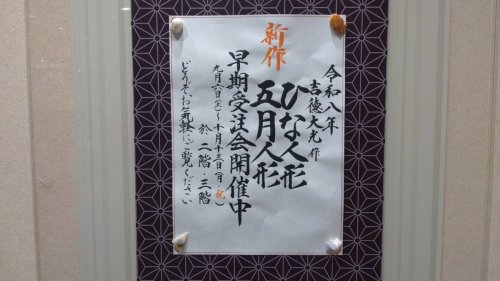 令和八年
吉徳大光 作
ひな人形
五月人形
新作
早期受注会開催中
九月六日(金)~十月十三日(月・祝)
於 二階・三階
どうぞ、お気軽にご覧ください